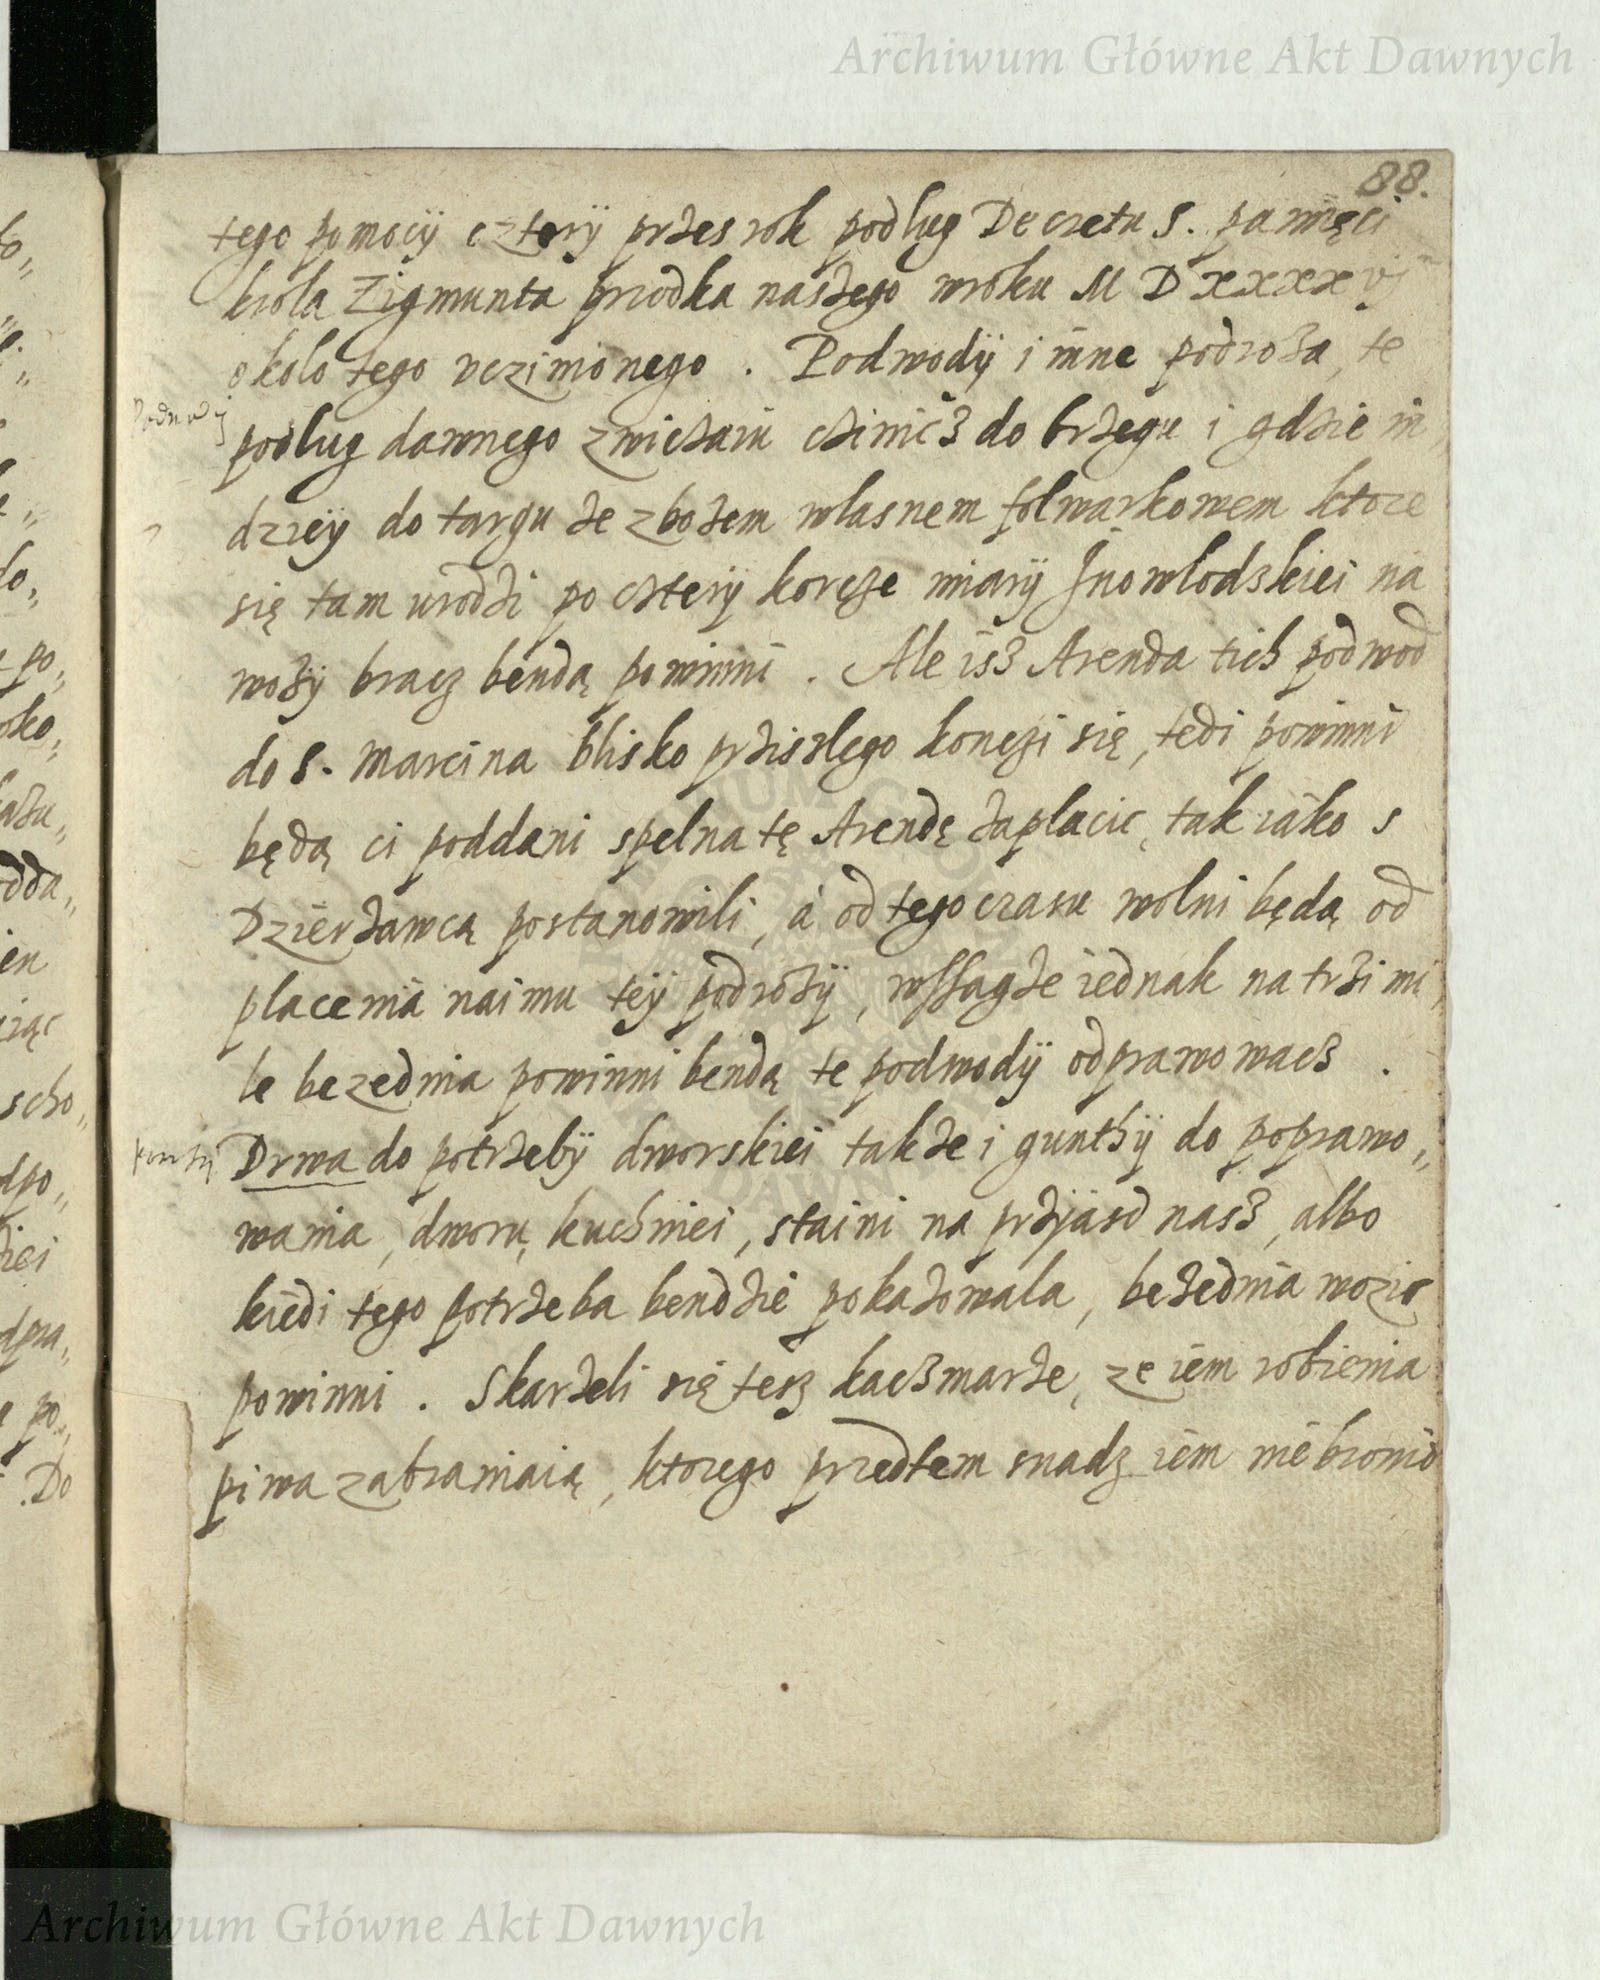 Archiwum Główne Akt Dawnych
88.
tego pomocÿ czterÿ przes rok podlug Decretu S. pamięci
krola Zigmunta przodka naszego wroku M D xxxx vj
okolo tego vczinionego . Podwodÿ i inne podroża, te
Podwodj
podlug dawnego zwiczaiu czinicz do brzegu i gdzie in
dzieÿ do targu ze zbożem wlasnem folwarkowem ktore
się tam urodzi po czterÿ korcze miarÿ Jnowlodskiei na
wozÿ bracz bendą powinni . Ale isz Arenda tich podwod
do S. Marcina blisko prziszlego konczi się, tedi powinni
będą ci poddani spelna tę Arendę zaplacic, tak iako s
Dzierżawcą postanowili, á od tego czasu wolni będą od
placenia naimu teÿ podrożÿ, wssagże iednak na trzi mi,
le bezednia powinni bendą te podwodÿ odprawowacz .
Drwa do potrzebÿ dworskiei także i gunthÿ do poprawo„
wania, dworu, kuchniei, staini na przÿiasd nasz, albo
kiedi tego potrzeba bendzie pokazowala, bezednia wozic
powinni . Skarżeli się tesz kaczmarze, ze iem robienia
piwa zabraniaią, ktorego przedtem snadz iem nie bronio
Archiwum Główne Akt Dawnych